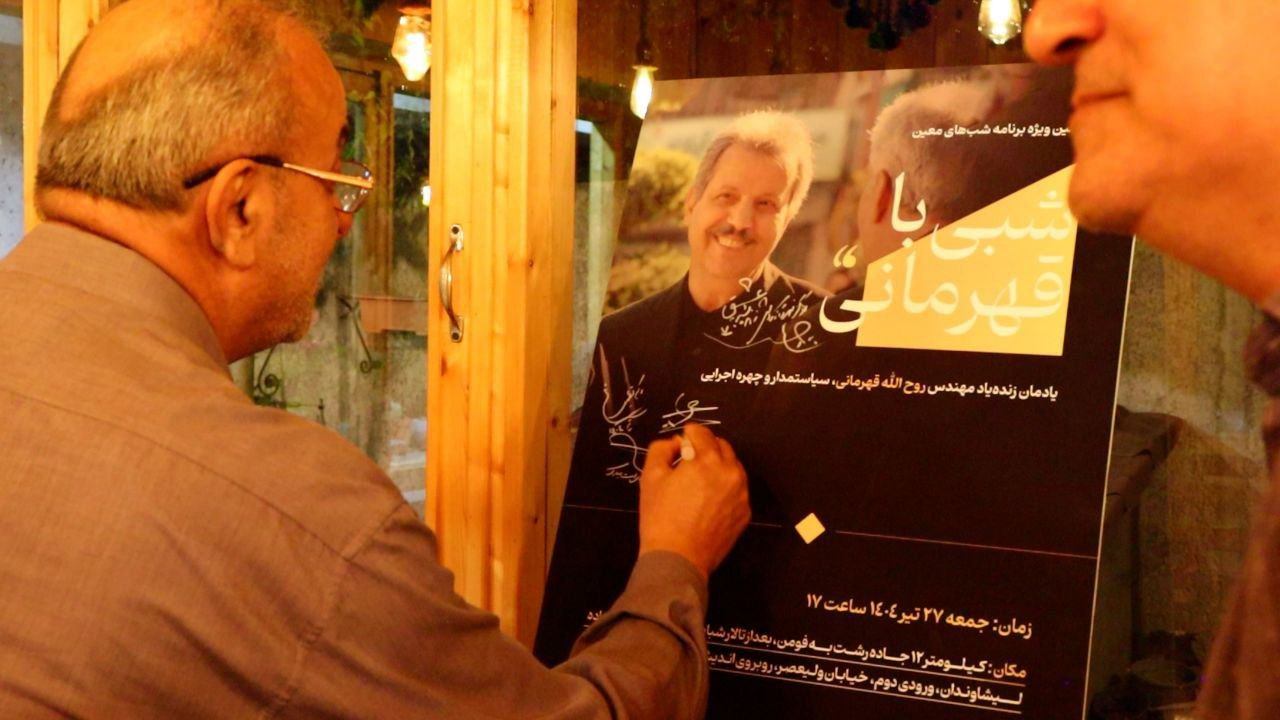 ین ویژه برنامه شب‌های معین
شبی با
قهرمانی
“
یادمان زنده‌یاد مهندس روح الله قهرمانی، سیاستمدار و چهره اجرایی
زمان: جمعه ۲۷ تیر ۱۴۰۴ ساعت ۱۷
مکان: کیلومتر ۱۲ جاده رشت به فومن، بعد از تالار شبا
لیشاوندان، ورودی دوم، خیابان ولیعصر، روبروی اندیش